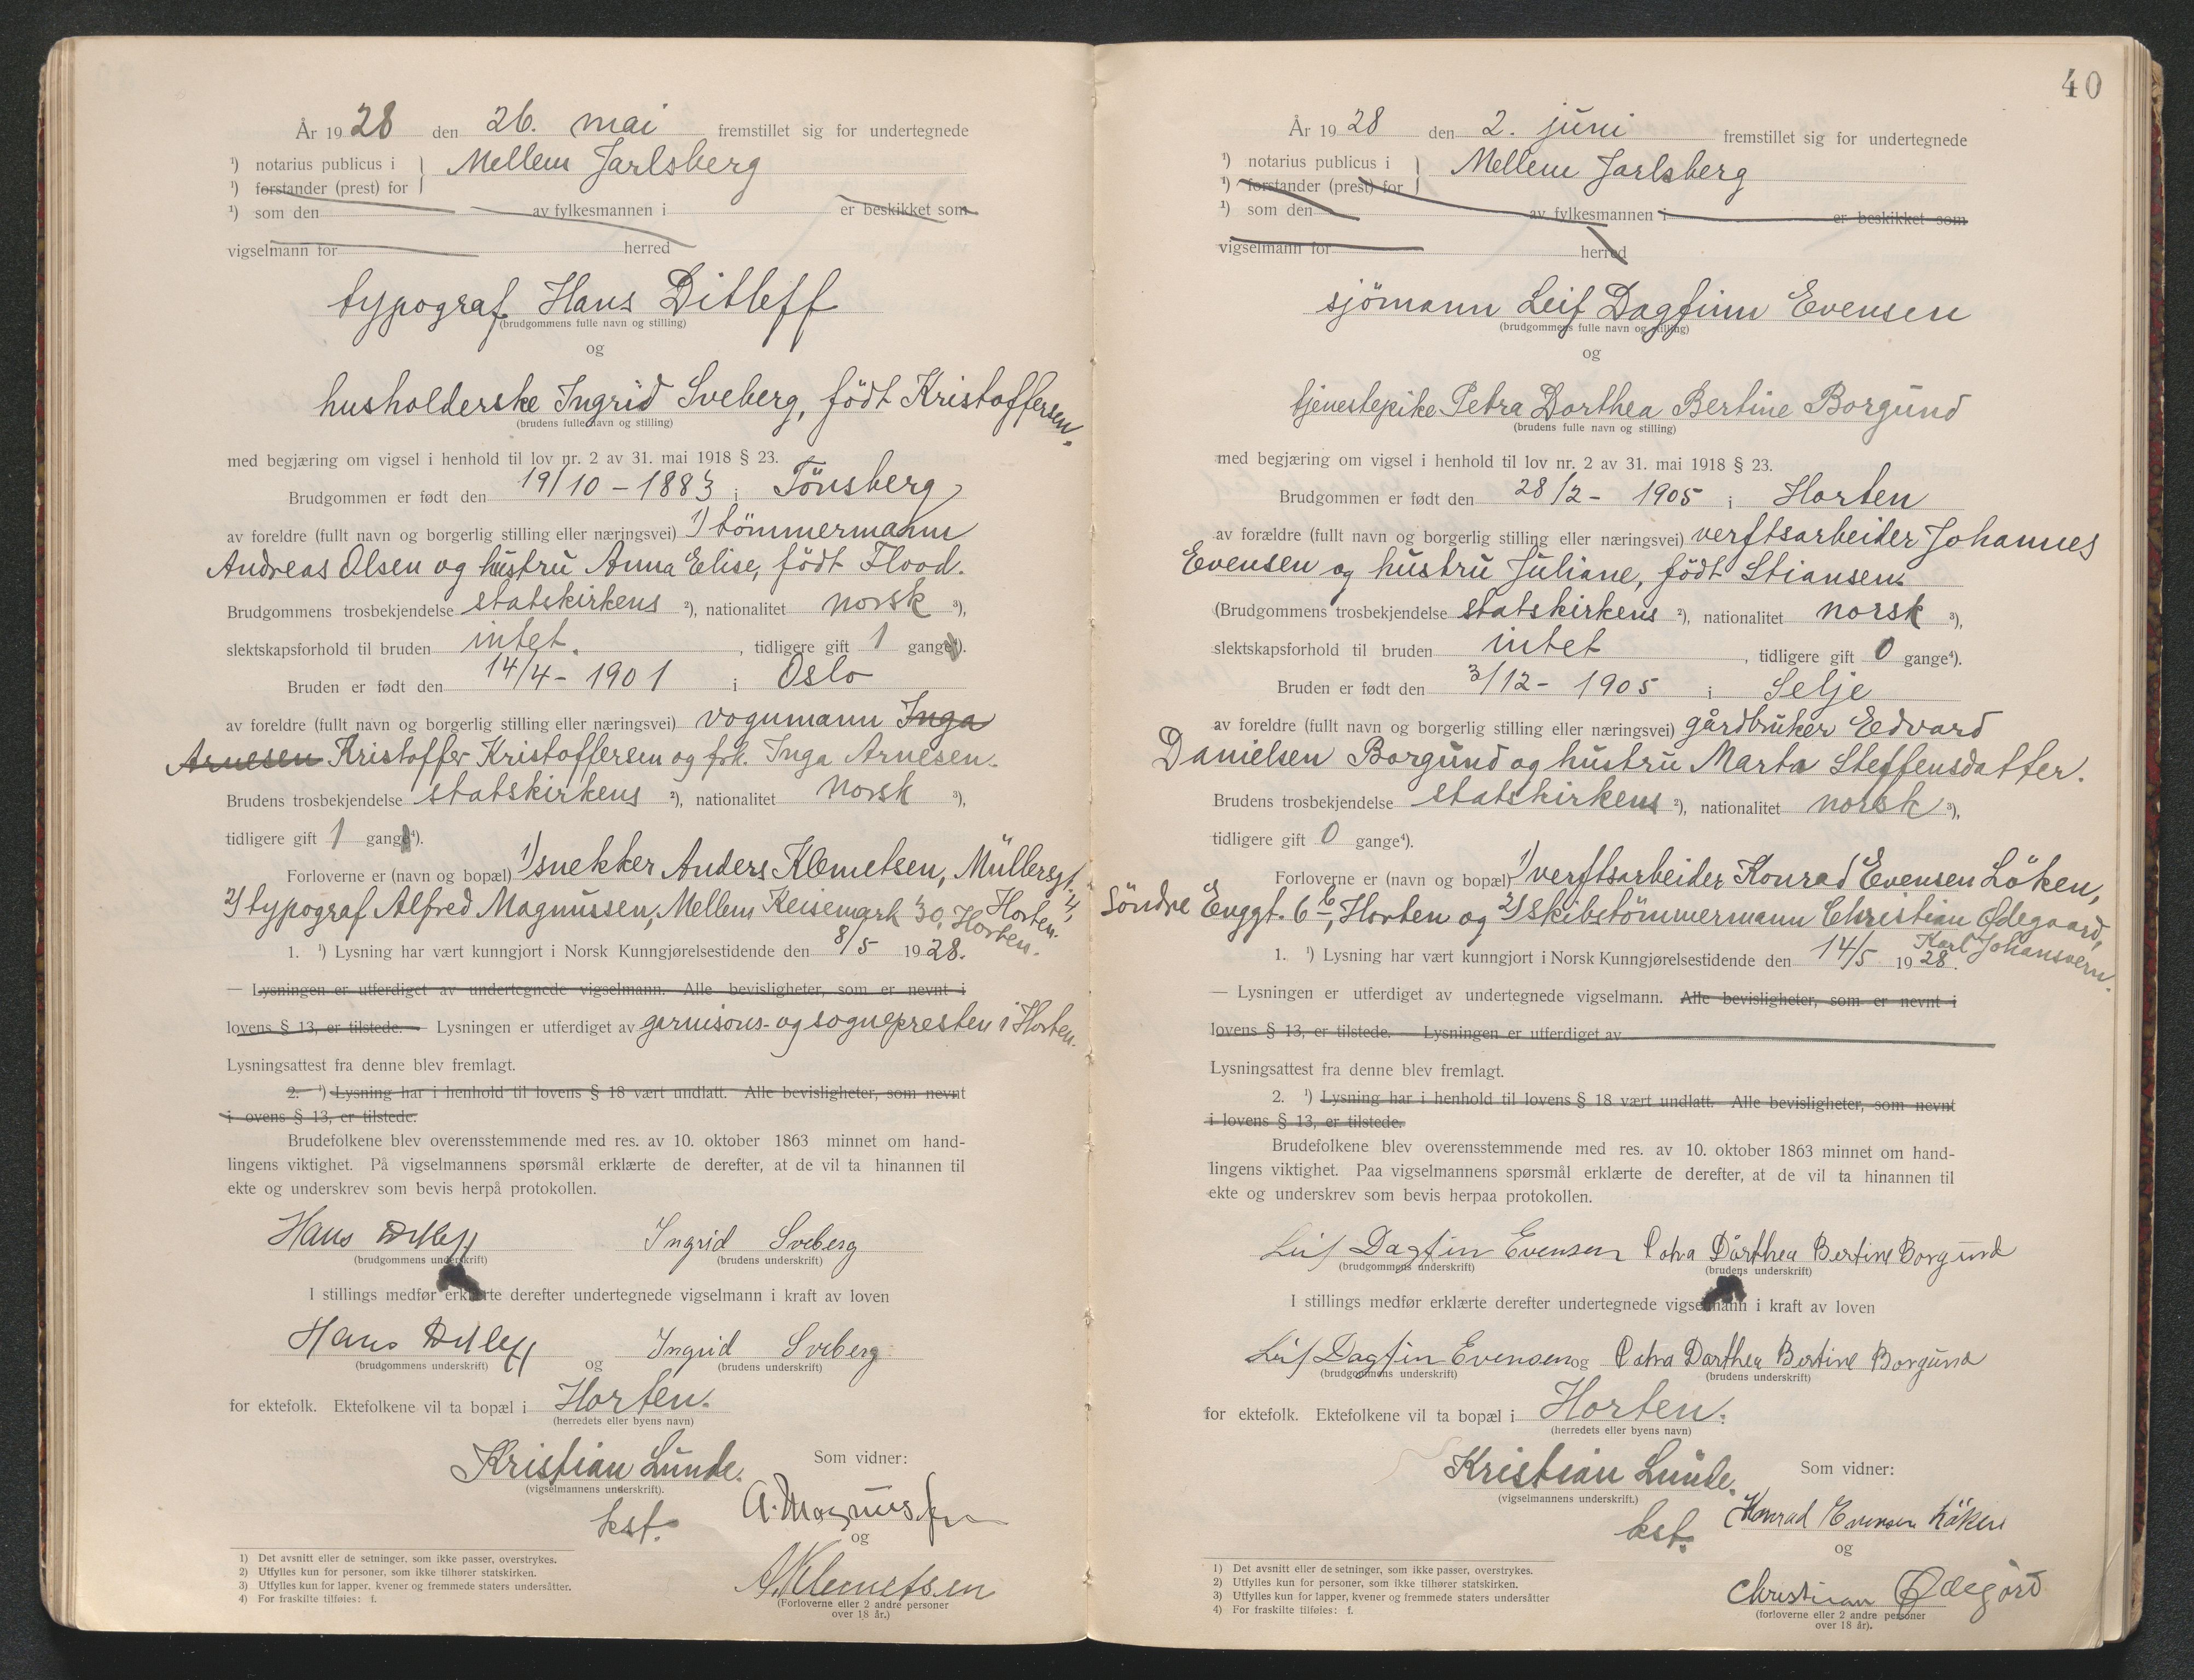 År 1928 den 26. mai fremstillet sig for undertegnede
¹) notarius publicus i } Mellem Jarlsberg
¹) forstander (prest) for
¹) som den av fylkesmannen i er beskikket som
vigselmann for herred
typograf Hans Ditleff
(brudgommens fulle navn og stilling)
og
husholderske Ingrid Sveberg, födt Kristoffersen.
(brudens fulle navn og stilling)
med begjæring om vigsel i henhold til lov nr. 2 av 31. mai 1918 § 23.
Brudgommen er født den 19/10 - 1883 i Tönsberg
av foreldre (fullt navn og borgerlig stilling eller næringsvei) ¹) tömmermann
Andreas Olsen og hustru Anna Elise, födt Flood.
Brudgommens trosbekjendelse statskirkens ²), nationalitet norsk ³),
slektskapsforhold til bruden intet. , tidligere gift 1 gang⁴).
Bruden er født den 14/4 - 1901 i Oslo
av foreldre (fullt navn og borgerlig stilling eller næringsvei) vognmann Inga
Arnesen Kristoffer Kristoffersen og frk. Inga Arnesen.
Brudens trosbekjendelse statskirkens ²), nationalitet norsk ³),
tidligere gift 1 gang⁴).
Forloverne er (navn og bopæl) 1) snekker Anders Klemetsen, Müllersgt. 4, Horten.
2) typograf Alfred Magnussen, Mellem Keisemark 30, Horten.
1. ¹) Lysning har vært kunngjort i Norsk Kunngjørelsestidende den 8/5 1928.
— Lysningen er utferdiget av undertegnede vigselmann. Alle bevisligheter, som er nevnt i
lovens § 13, er tilstede. Lysningen er utferdiget av garnisons- og sognepresten i Horten.
Lysningsattest fra denne blev fremlagt.
2. ¹) Lysning har i henhold til lovens § 18 vært undlatt. Alle bevisligheter, som nevnt
i ovens § 13, er tilstede.
Brudefolkene blev overensstemmende med res. av 10. oktober 1863 minnet om hand-
lingens viktighet. På vigselmannens spørsmål erklærte de derefter, at de vil ta hinannen til
ekte og underskrev som bevis herpå protokollen.
Hans Ditleff Ingrid Sveberg
(brudgommens underskrift) (brudens underskrift)
I stillings medfør erklærte derefter undertegnede vigselmann i kraft av loven
Hans Ditleff og Ingrid Sveberg
(brudgommens underskrift) (brudens underskrift)
for ektefolk. Ektefolkene vil ta bopæl i Horten.
(herredets eller byens navn)
Kristian Lunde. Som vidner:
(vigselmannens underskrift).
kst. A. Magnussen
og
A. Klemetsen
(Forloverne eller 2 andre personer
over 18 år.)
1) Det avsnitt eller de setninger, som ikke passer, overstrykes.
2) Utfylles kun for personer, som ikke tilhører statskirken.
3) Utfylles kun for lapper, kvener og fremmede staters undersåtter.
4) For fraskilte tilføies: f.
40
År 1928 den 2. juni fremstillet sig for undertegnede
¹) notarius publicus i } Mellem Jarlsberg
¹) forstander (prest) for
¹) som den av fylkesmannen i er beskikket som
vigselmann for herred
sjömann Leif Dagfinn Evensen
(brudgommens fulle navn og stilling)
og
tjenestepike Petra Dorthea Bertine Borgund
(brudens fulle navn og stilling)
med begjæring om vigsel i henhold til lov nr. 2 av 31. mai 1918 § 23.
Brudgommen er født den 28/2 - 1905 i Horten
av forældre (fullt navn og borgerlig stilling eller næringsvei) verftsarbeider Johannes
Evensen og hustru Juliane, födt Stiansen.
(Brudgommens trosbekjendelse statskirkens ²), nationalitet norsk ³),
slektskapsforhold til bruden intet , tidligere gift 0 gange⁴).
Bruden er født den 3/12 - 1905 i Selje
av foreldre (fullt navn og borgerlig stilling eller næringsvei) gårdbruker Edvard
Danielsen Borgund og hustru Marta Steffensdatter.
Brudens trosbekjendelse statskirkens ²), nationalitet norsk ³),
tidligere gift 0 gange⁴).
Forloverne er (navn og bopæl) 1) verftsarbeider Konrad Evensen Löken,
Söndre Enggt. 6 b, Horten og 2) skibstömmermann Christian Ödegaard, Karl Johansvern.
1. ¹) Lysning har vært kunngjort i Norsk Kunngjørelsestidende den 14/5 1928.
— Lysningen er utferdiget av undertegnede vigselmann. Alle bevisligheter, som er nevnt i
lovens § 13, er tilstede. Lysningen er utferdiget av
Lysningsattest fra denne blev fremlagt.
2. ¹) Lysning har i henhold til lovens § 18 vært undlatt. Alle bevisligheter, som nevnt
i lovens § 13, er tilstede.
Brudefolkene blev overensstemmende med res. av 10. oktober 1863 minnet om hand-
lingens viktighet. Paa vigselmannens spørsmål erklærte de derefter, at de vil ta hinannen til
ekte og underskrev som bevis herpaa protokollen.
Leif Dagfin Evensen Petra Dorthea Bertine Borgund
(brudgommens underskrift) (brudens underskrift)
I stillings medfør erklærte derefter undertegnede vigselmann i kraft av loven
Leif Dagfin Evensen og Petra Dorthea Bertine Borgund
(brudgommens underskrift) (brudens underskrift)
for ektefolk. Ektefolkene vil ta bopæl i Horten.
(herredets eller byens navn)
Kristian Lunde. Som vidner:
(vigselmannens underskrift.)
kst. Konrad Evensen Löken
og
Christian Ødegård
(forloverne eller 2 andre personer
over 18 år).
1) Det avsnitt eller de setninger, som ikke passer, overstrykes.
2) Utfylles kun for personer, som ikke tilhører statskirken.
3) Utfylles kun for lapper, kvener og fremmede staters undersåtter
4) For fraskilte tilføies: f.